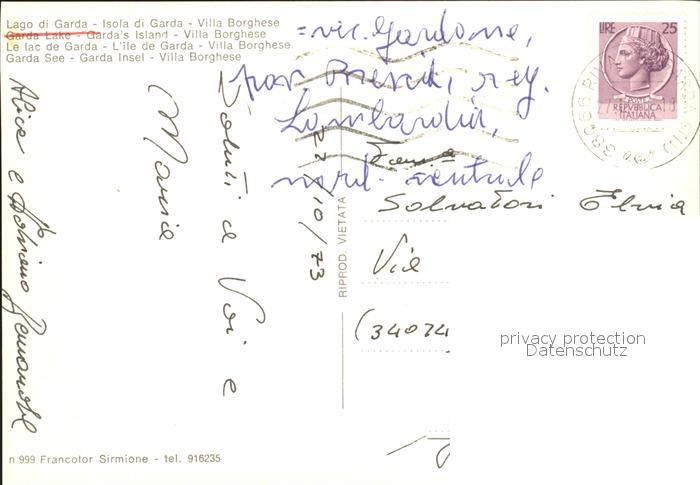 Lago di Garda - Isola di Garda - Villa Borghese
Garda Lake - Garda's Island - Villa Borghese
Le lac de Garda - L'île de Garda - Villa Borghese
Garda See - Garda Insel - Villa Borghese
= vic. Gardone,
prov. Brescia, reg.
Lombardia,
nord-centrale
LIRE 25
REPUBBLICA
ITALIANA
38066
22/10/73
Saluti a Voi e
Maria
Alice e Adriano
RIPROD. VIETATA
Salvatori Elvia
Via
(34074
privacy protection
Datenschutz
n 999 Francolor Sirmione - tel. 916235